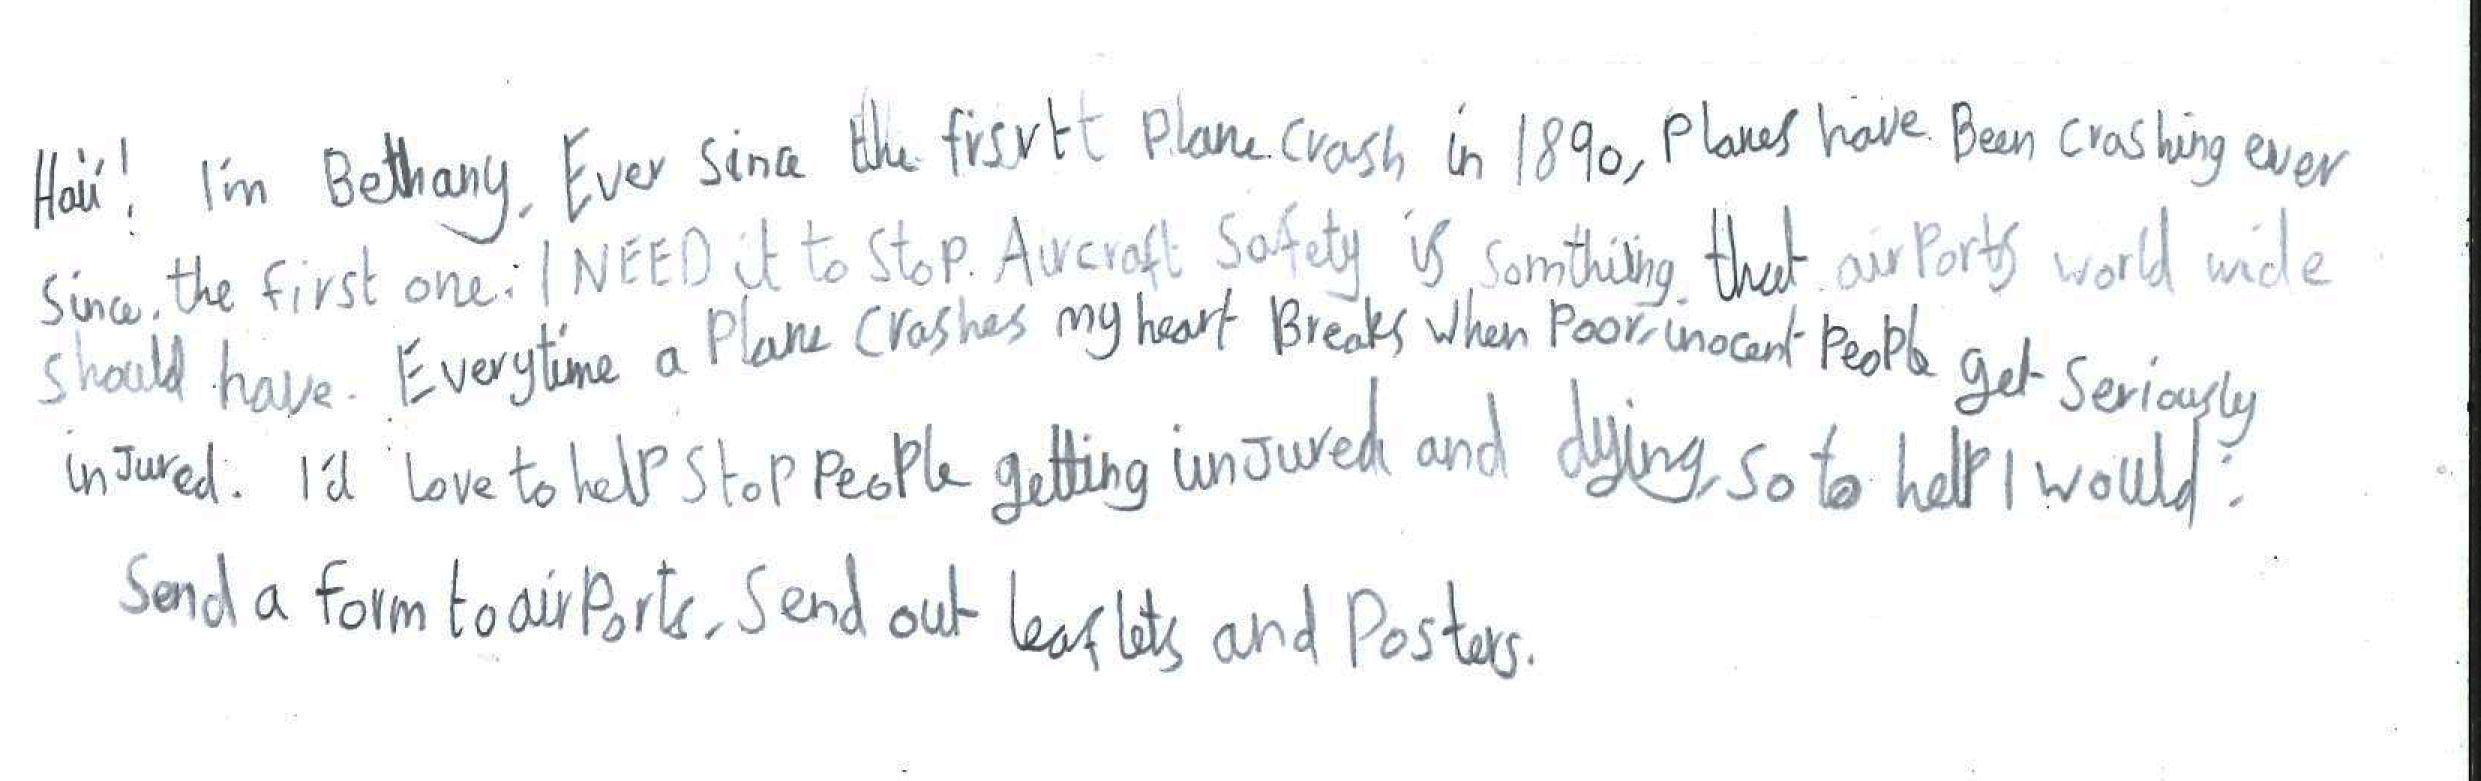 Haii! I'm Bethany. Ever since the firsrtt Plane crash in 1890, Planes have Been crashing ever
since. the first one: I NEED it to stop. Aircraft Safety is somthiing that airPorts world wide
should have. Everytime a Plane Crashes my heart Breaks when Poor, inocent People get Seriously
inJured. I'd love to help stop People getting inJured and dying, so to help I would:
Send a form to airPorts, Send out leaflets and Posters.